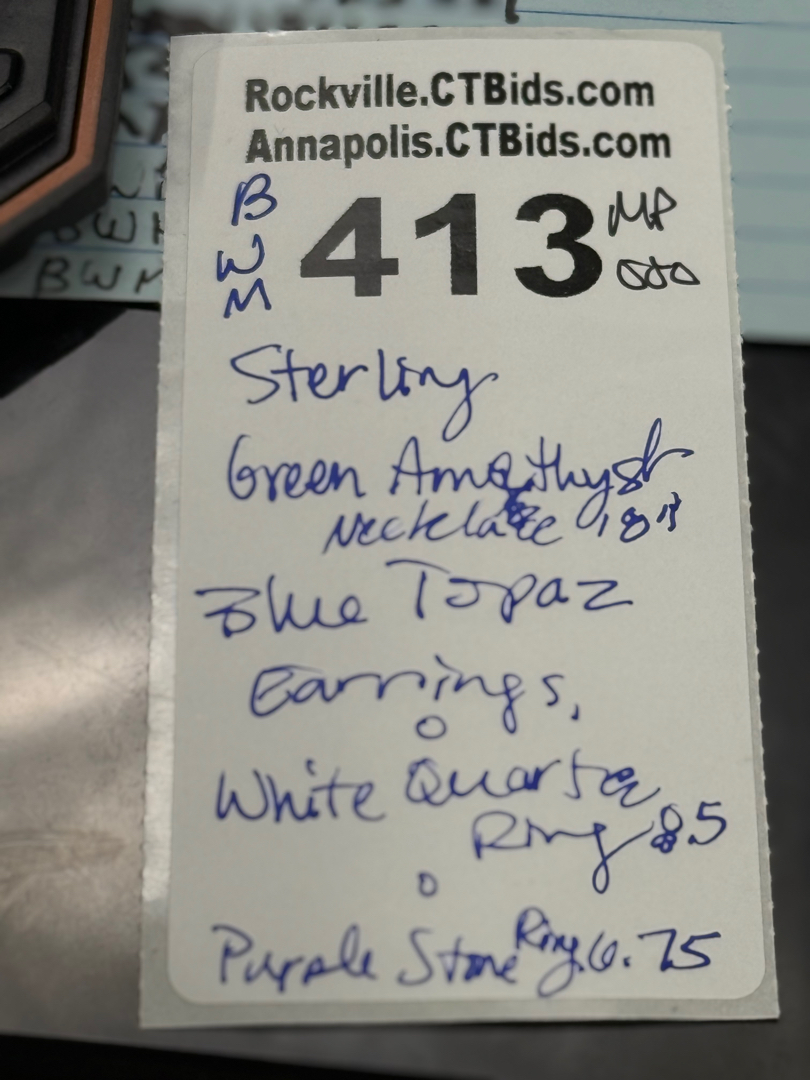 Rockville.CTBids.com
Annapolis.CTBids.com
B
W
M
413
MP
Sterling
Green Amethyst
Necklace 18"
Blue Topaz
Earrings,
White Quartz
Ring 8.5
Purple Stone Ring 6.75
BWM